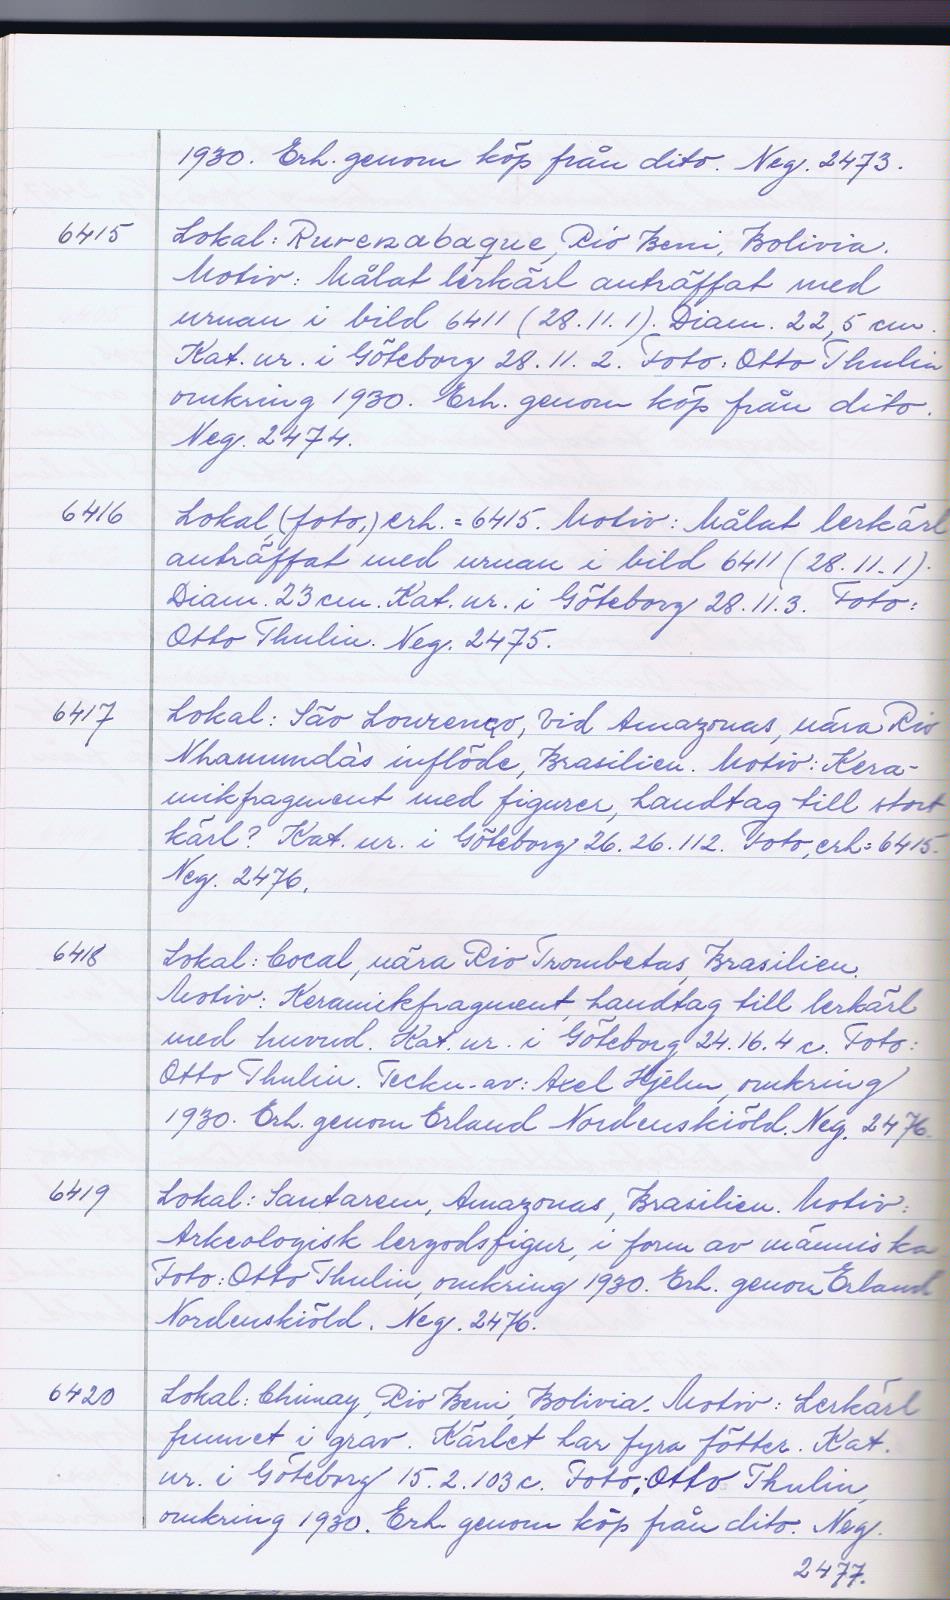 1930. Erh. genom köp från dito. Neg. 2473.
6415 Lokal: Rurenabaque, Rio Beni, Bolivia.
Motiv: Målat lerkärl anträffat med
urnan i bild 6411 (28.11.1). Diam. 22,5 cm.
Kat. nr. i Göteborg 28.11.2. Foto: Otto Thulin
omkring 1930. Erh. genom köp från dito.
Neg. 2474.
6416 Lokal, (foto,) erh. = 6415. Motiv: Målat lerkärl
anträffat med urnan i bild 6411 (28.11.1).
Diam. 23 cm. Kat. nr. i Göteborg 28.11.3. Foto:
Otto Thulin. Neg. 2475.
6417 Lokal: São Lourenço, vid Amazonas, nära Rio
Nhamundàs inflöde, Brasilien. Motiv: Kera-
mikfragment med figurer, handtag till stort
kärl? Kat. nr. i Göteborg 26.26.112. Foto, erh = 6415.
Neg. 2476.
6418 Lokal: Cocal, nära Rio Trombetas, Brasilien.
Motiv: Keramikfragment, handtag till lerkärl
med huvud. Kat. nr. i Göteborg 24.16.4 c. Foto:
Otto Thulin. Teckn. av: Axel Hjelm, omkring
1930. Erh. genom Erland Nordenskiöld. Neg. 2476.
6419 Lokal: Santarem, Amazonas, Brasilien. Motiv:
Arkeologisk lergodsfigur, i form av människa
Foto: Otto Thulin, omkring 1930. Erh. genom Erland
Nordenskiöld. Neg. 2476.
6420 Lokal: Chimay, Rio Beni, Bolivia. Motiv: Lerkärl
funnet i grav. Kärlet har fyra fötter. Kat.
nr. i Göteborg 15.2.103 c. Foto: Otto Thulin,
omkring 1930. Erh. genom köp från dito. Neg.
2477.